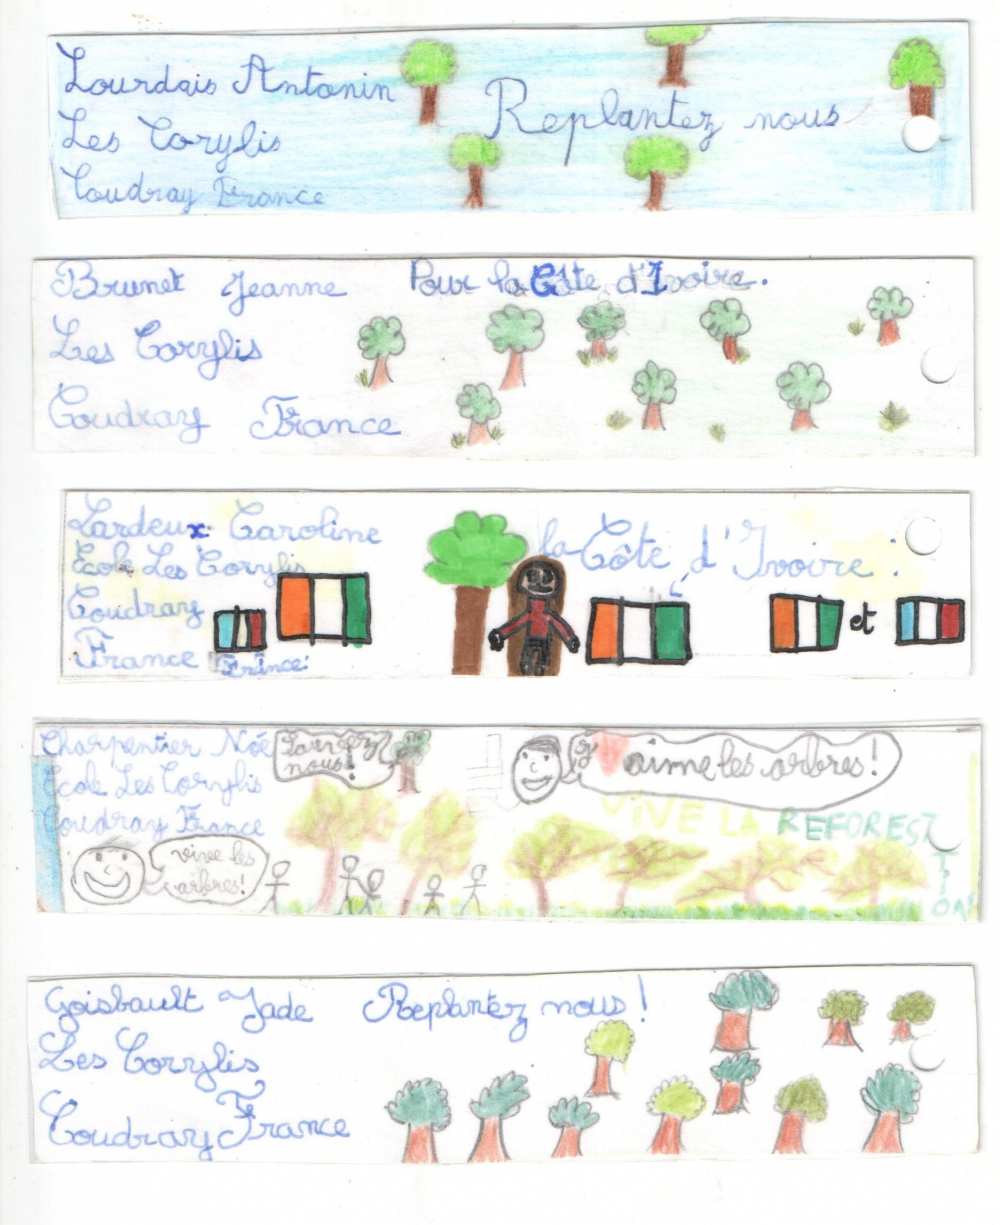 Lourdais Antonin
Les Corylis
Coudray France
Replantez nous
Brunet Jeanne
Les Corylis
Coudray France
Pour la Côte d'Ivoire.
Lardeux Caroline
École Les Corylis
Coudray
France
France
la Côte d'Ivoire :
et
Charpentier Noé
École Les Corylis
Coudray France
nous!
vive les
arbres!
J'aime les arbres!
VIVE LA REFORESTATION
Goisbault Jade
Les Corylis
Coudray France
Replantez nous!